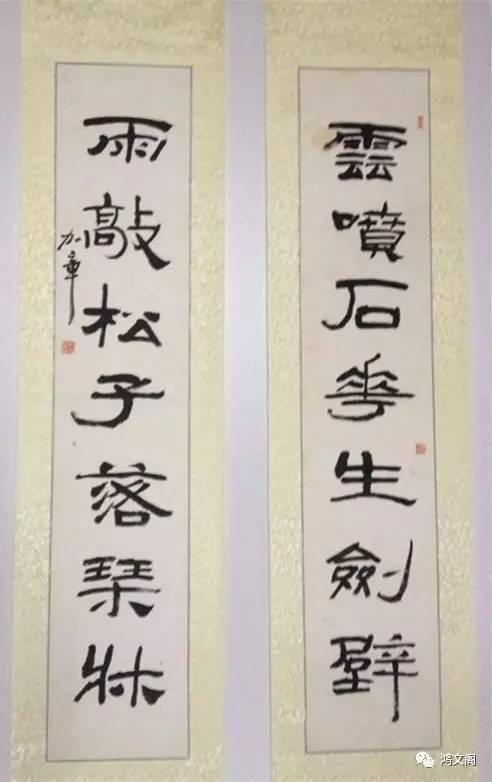 雲噴石花生劍壁
雨敲松子落琹牀
加章
鸿文阁